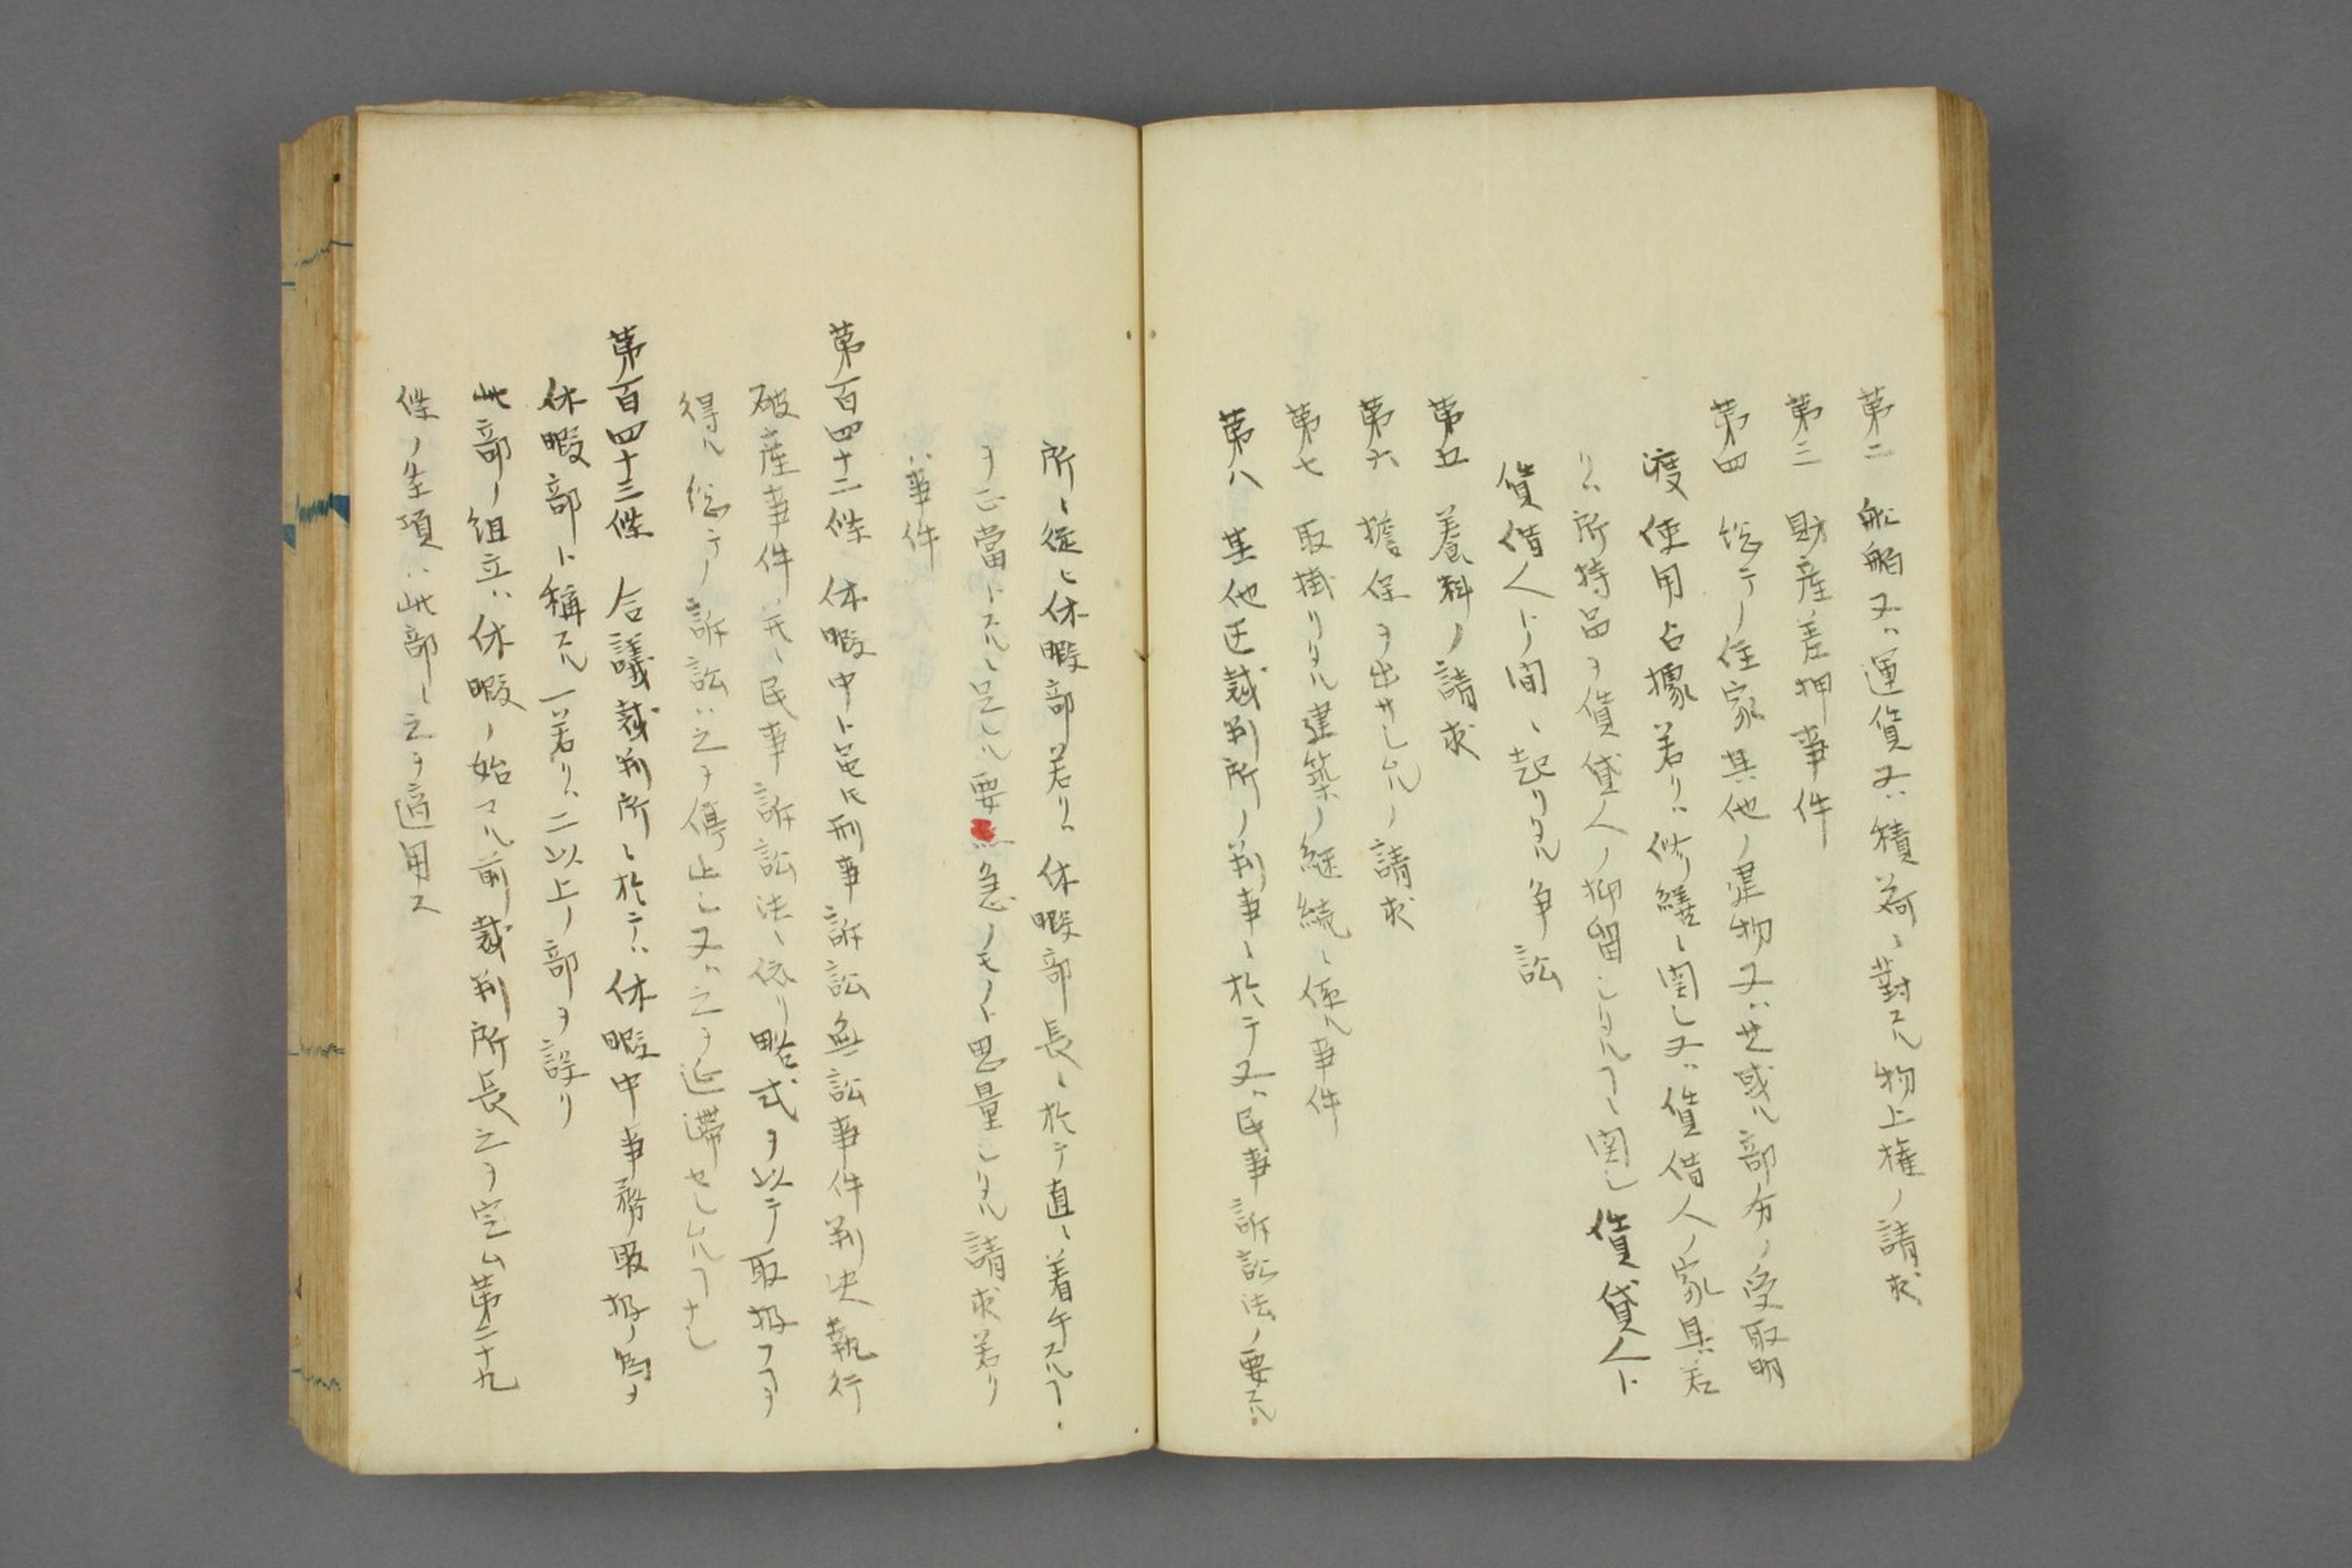 第二 船舶又ハ運賃又ハ積荷ニ對スル物上権ノ請求
第三 財産差押事件
第四 総テノ住家其他ノ建物又ハ其或ル部分ノ受取明
渡使用占據若リハ修繕ニ関シ又ハ賃借人ノ家具若
リハ所持品ヲ賃貸人ノ抑留シタルヿニ関シ賃貸人ト
賃借人トノ間ニ起リタル争訟
第五 養料ノ請求
第六 擔保ヲ出サシムルノ請求
第七 取掛リタル建築ノ継続ニ係ル事件
第八 其他区裁判所ノ判事ニ於テ又ハ民事訴訟法ノ要スル
所ニ従ヒ休暇部若リハ休暇部長ニ於テ直ニ着手スルヿ
ヲ正當トスルニ足ル要急ノモノト思量シタル請求若リ
ハ事件
第百四十二條 休暇中ト雖𪜈刑事訴訟無訟事件判決執行
破産事件並ニ民事訴訟法ニ依リ略式ヲ以テ取扱フヿヲ
得ル総テノ訴訟ハ之ヲ停止シ又ハ之ヲ延滞セシムルヿナシ
第百四十三條 合議裁判所ニ於テハ休暇中事務取扱ノ為ヲ
休暇部ト稱スル一若リハ二以上ノ部ヲ設リ
此部ノ組立ハ休暇ノ始マル前裁判所長之ヲ定ム第二十九
條ノ第 項ハ此部ニ之ヲ適用ス